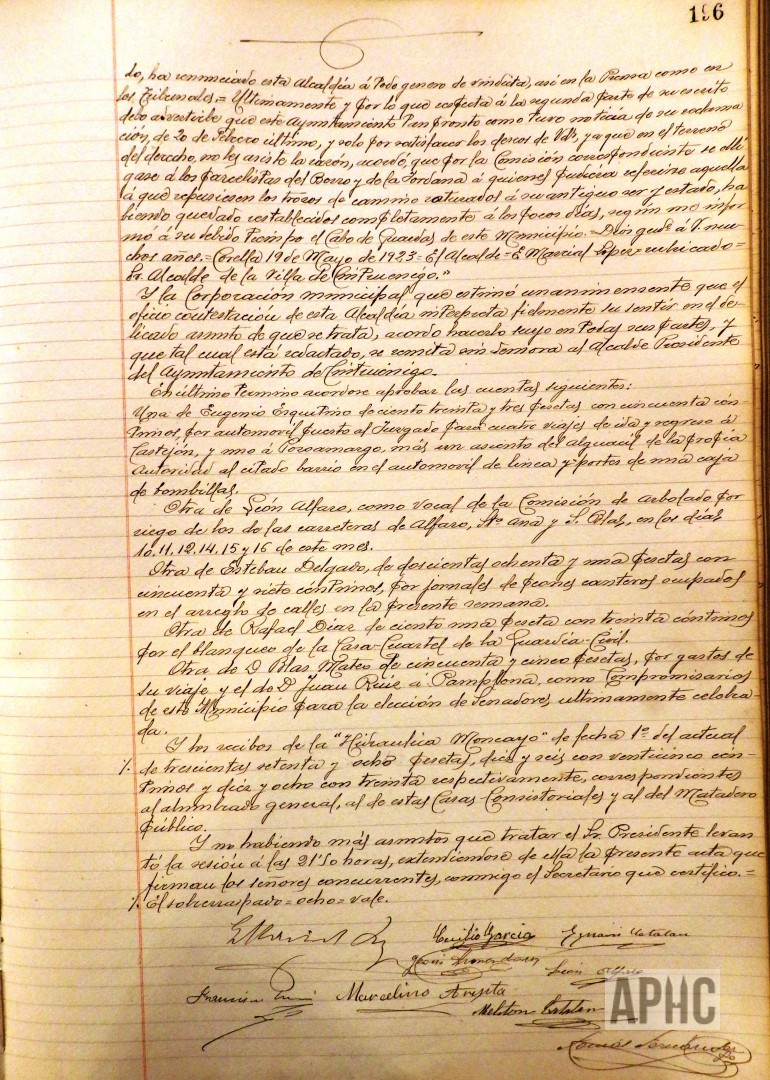 196
do, ha renunciado esta Alcaldía á todo genero de vindicta, asi en la Prensa como en
los Tribunales.= Ultimamente y por lo que respecta á la segunda parte de su escrito
debo advertirle que este Ayuntamiento tan pronto como tuvo noticia de su reclama
ción, de 20 de Febrero último, y solo por satisfacer los deseos de Vds, ya que en el terreno
del derecho, no les asiste la razón, acordó, que por la Comisión correspondiente se obli
gase á los parcelistas del Bozo y de la Jordana á quienes pudiera referirse aquella
á que repusiesen los trozos de camino roturados á su antiguo ser y estado, ha
biendo quedado restablecidos completamente á los pocos días, según me infor
mó á su debido tiempo el Cabo de Guardas de este Municipio.= Dios gude á V. mu
chos años.= Corella 19 de Mayo de 1923= El Alcalde= E. Marcial Lopez= rubricado=
Sr. Alcalde de la Villa de Cintruenigo."
Y la Corporación municipal que estimó unanimemente que el
oficio contestación de esta Alcaldía interpreta fielmente su sentir en el de-
licado asunto de que se trata, acordo hacerlo suyo en todas sus partes, y
que tal cual está redactado, se remita sin demora al Alcalde Presidente
del Ayuntamiento de Cintruenigo.
En último termino acordose aprobar las cuentas siguientes:
Una de Eugenio de ciento treinta y tres pesetas con cincuenta cén-
timos, por automovil puesto al Juzgado para cuatro viajes de ida y regreso á
Castejón, y uno á más un asiento del alguacil de la propia
Autoridad al citado barrio en el automovil de linea y portes de una caja
de bombillas.
Otra de León Alfaro, como vocal de la Comisión de Arbolado por
riego de los de las carreteras de Alfaro, Sta. Ana y S. Blas, en los días
10. 11. 12. 14. 15 y 16 de este mes.
Otra de Esteban Delgado, de doscientas ochenta y una pesetas con
cincuenta y siete céntimos, por jornales de peones canteros ocupados
en el arreglo de calles en la presente semana.
Otra de Rafael Diaz de ciento una peseta con treinta céntimos
por el blanqueo de la Casa-Cuartel de la Guardia-Civil.
Otra de D. Blas Mateo de cincuenta y cinco pesetas, por gastos de
su viaje y el de D. Juan Ruiz á Pamplona como Compromisarios
de este Municipio para la elección de Senadores ultimamente celebra-
da.
Y los recibos de la "Hidraulica Moncayo" de fecha 1º del actual
de trescientas setenta y ocho pesetas, diez y seis con venticinco cén-
timos y diez y ocho con treinta respectivamente, correspondientes
al alumbrado general, al de estas Casas-Consistoriales y al del Matadero
Público.
Y no habiendo más asuntos que tratar el Sr. Presidente levan
tó la sesión á las 21'50 horas, extendiendose de ella la presente acta que
firman los señores concurrentes, conmigo el Secretario que certifico.=
El sobrerraspado= ocho= vale.
Emilio Garcia
León Alfaro
Marcelino Arigita
Meliton Catalan
APHC